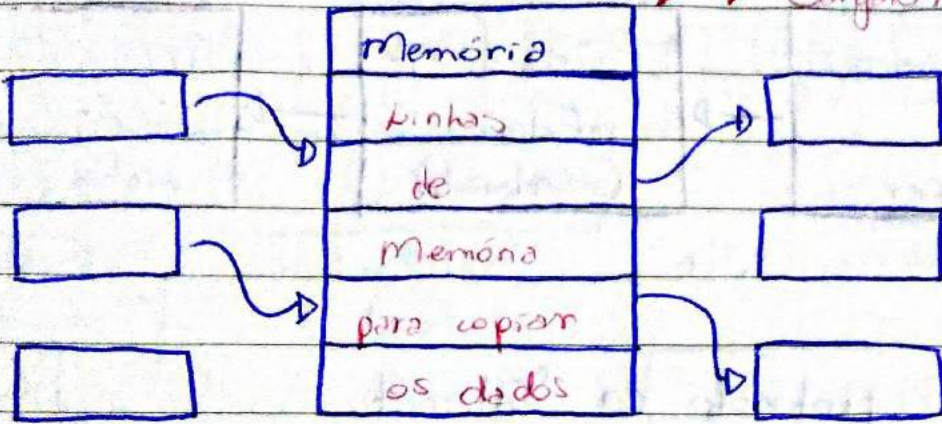 Memória
Linhas
de
Memória
para copiar
os dados